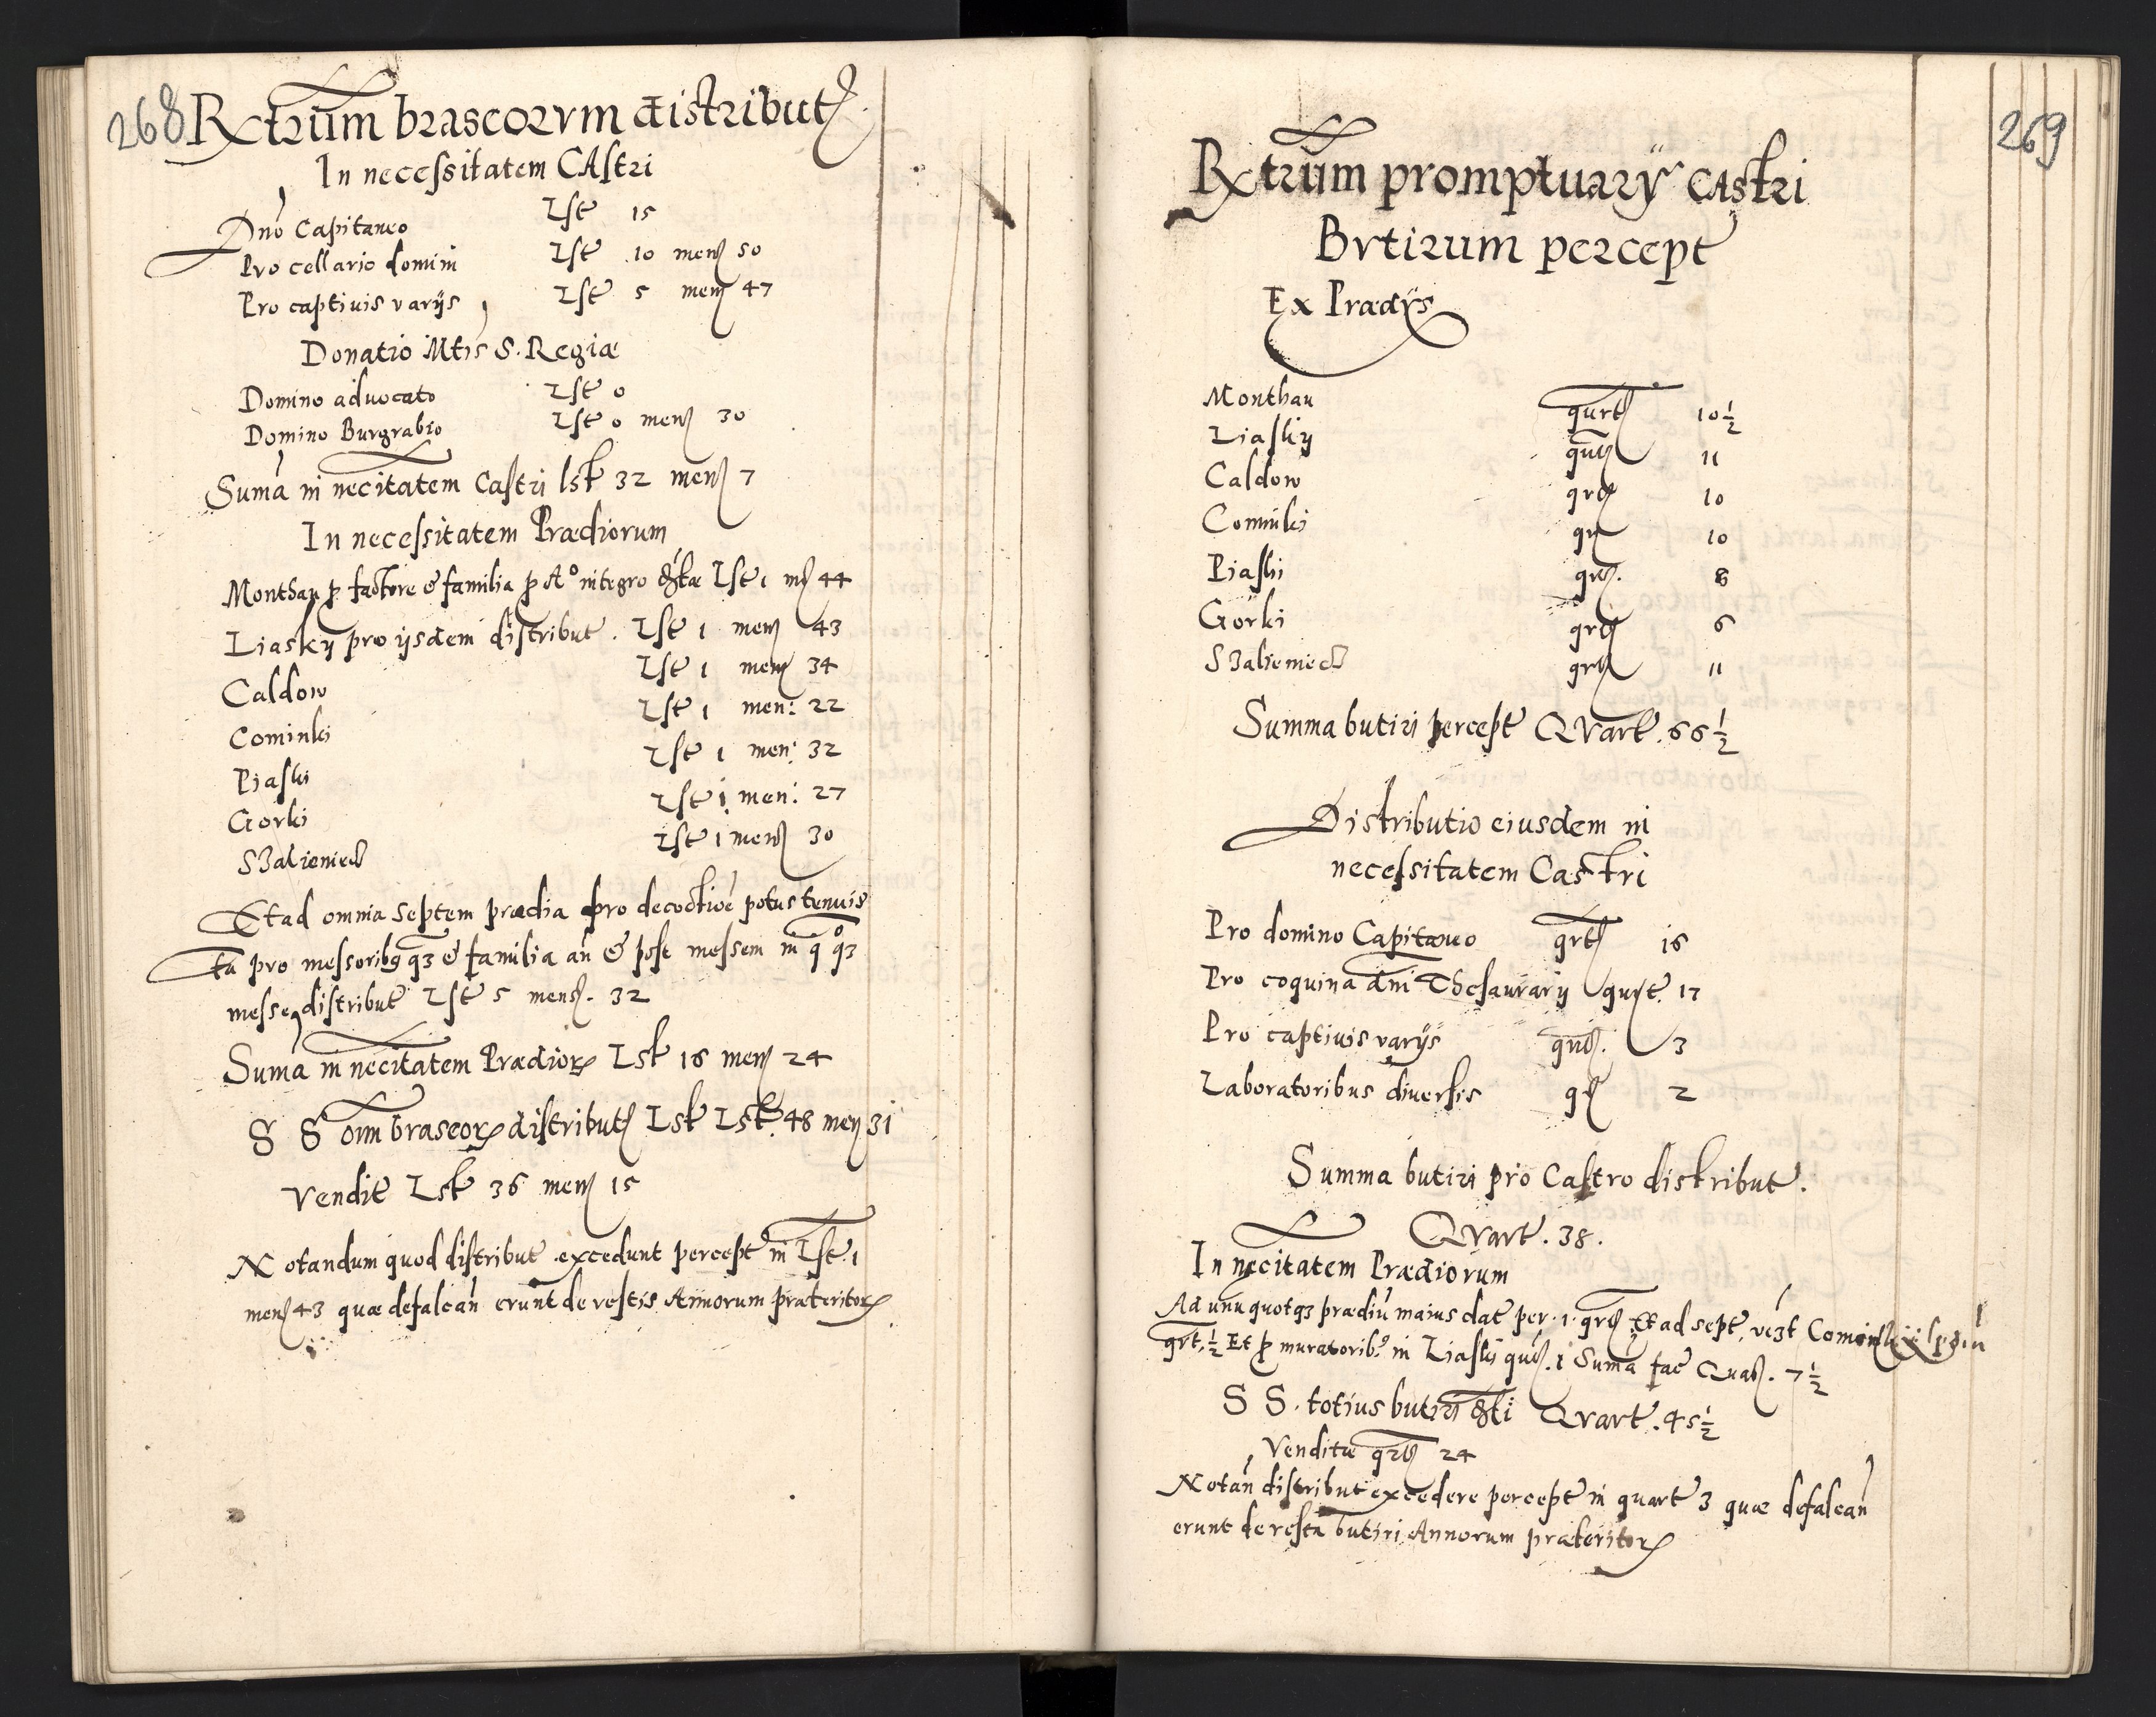 268 Rxtrum brascorum distribut
In necessitatem CAstri
Dno Capitaneo Lst 15
Pro cellario domini Lst 10 mens 50
Pro captivis varijs Lst 5 mens 47
Donatio Mtis S. Regiæ
Domino advocato Lst 0
Domino Burgrabio Lst 0 mens 30
Suma in necitatem Castri lst 32 mens 7
In necessitatem Prædiorum
Monthau p factore & familia p Ao integro Lst 1 ms 44
Liasky pro ijsdem distribut. Lst 1 mens 43
Caldow Lst 1 mens 34
Cominki Lst 1 men: 22
Piaski Lst 1 men: 32
Gorki Lst 1 men: 27
S3alieniecz Lst 1 mens 30
Et ad omnia septem prædia pro decoctioe potus tenuis
tū pro messoribq q3 & familia an & post messem in q q3
messe distribut Lst 5 mens. 32
Suma in necitatem Prædior Lst 16 mens 24
S S oim braseor distribut Lst Lst. 48 men 31
Vendit Lst 36 mens 15
Notandum quod distribut excedunt percept in Lst. 1
mens 43 quæ defalcan erunt de restis Annorum præteritor
269
Rxtrum promptuarÿ CAstri
Butirum percept
Ex Prædÿs
Monthau qurt 10 1/2
Liasky qurt 11
Caldow qrt 10
Cominki qr 10
Piaski qrt. 8
Gorki qrt 6
S3alieniecz qrt 11
Summa butiri percept Quart. 66 1/2
Distributio eiusdem in
necessitatem Castri
Pro domino Capitaneo qrt 16
Pro coquina dni Thesaurarij qurt. 17
Pro captivis varijs qurt. 3
Laboratoribus diversis qt 2
Summa butiri pro Castro distribut.
Quart. 38.
In necitatem Prædiorum
Ad unū quotq3 prædiū maius dat per. 1. qrt ad sept, Cominki
qrt. 1/2 Et p muratorib9 in Liaski qurt. 1 Suma fac Quart. 7 1/2
S S. totius butiri Quart. 45 1/2
Venditæ qrt 24
Notan distribut excedere percept in quart 3 quæ defalcan
erunt de resta butiri Annorum præteritor